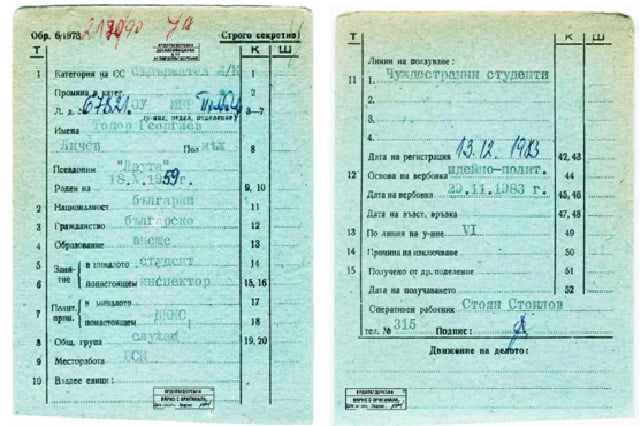 Обр. 6/1978
Строго секретно
Т К Ш
1 Категория на СС съдържател Я/К 1
Промяна в катег. 2
Л. д. № 67821. ОУ МВР 3—7
(у-ние, отдел, отделение)
Имена Тодор Георгиев
Личев Пол мъж 8
Псевдоним "Лаута"
Роден на 18.X.1959г. 9, 10
2 Националност българин 11
3 Гражданство българско 12
4 Образование висше 13
5 Занятие в миналото студент 14
6 понастоящем инспектор 15, 16
7 Полит. прин. в миналото 17
понастоящем ДКМС 18
8 Общ. група служащ 19, 20
9 Месторабота
10 Владее езици:
ВЯРНО С ОРИГИНАЛА
Т К Ш
Линии на ползуване:
11 1. Чуждестранни студенти
2.
3.
4.
Дата на регистрация 13.12.1983 42, 43
12 Основа на вербовка идейно-полит. 44
Дата на вербовка 29.11.1983 г. 45, 46
Дата на възст. връзка 47, 48
13 По линия на у-ние VI 49
14 Причина на изключване 50
15 Получено от др. поделение 51
Дата на получаването 52
Оперативен работник Стоян Стоилов
тел. № 315 Подпис:
Движение на делото:
ВЯРНО С ОРИГИНАЛА